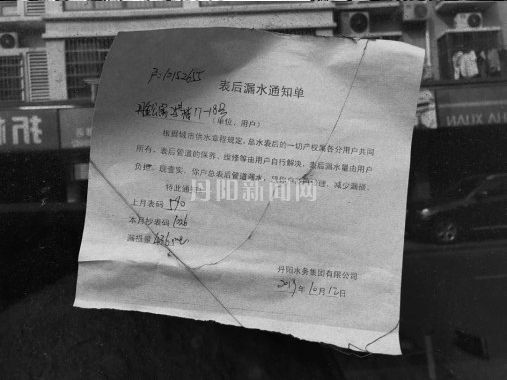 户:10152655
表后漏水通知单
17-18号
(单位、用户)
根据城市供水章程规定,总水表后的一切产权属各分用户共同
所有。表后管道的保养、维修等由用户自行解决,表后漏水量由用户
负担。现查实,你户总表后管道漏水,减少漏损。
特此通知
上月表码 590
本月抄表码 1026
漏损量 436
丹阳水务集团有限公司
2013年10月12日
丹阳新闻网